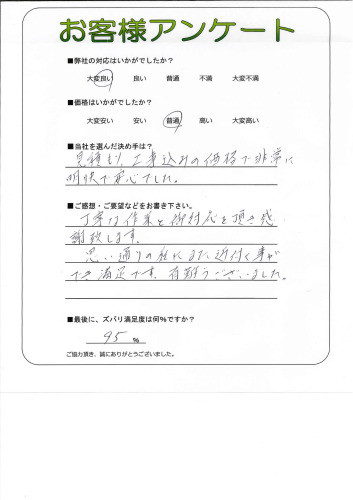 お客様アンケート
■弊社の対応はいかがでしたか?
大変良い 良い 普通 不満 大変不満
■価格はいかがでしたか?
大変安い 安い 普通 高い 大変高い
■当社を選んだ決め手は?
見積もり、工事込みの価格で非常に
明快で安心でした。
■ご感想・ご要望などをお書き下さい。
丁寧な作業と御対応を頂き感
謝致します。
思い通りの私にまた近付く事が
でき満足です。有難うございました。
■最後に、ズバリ満足度は何%ですか?
95 %
ご協力頂き、誠にありがとうございました。